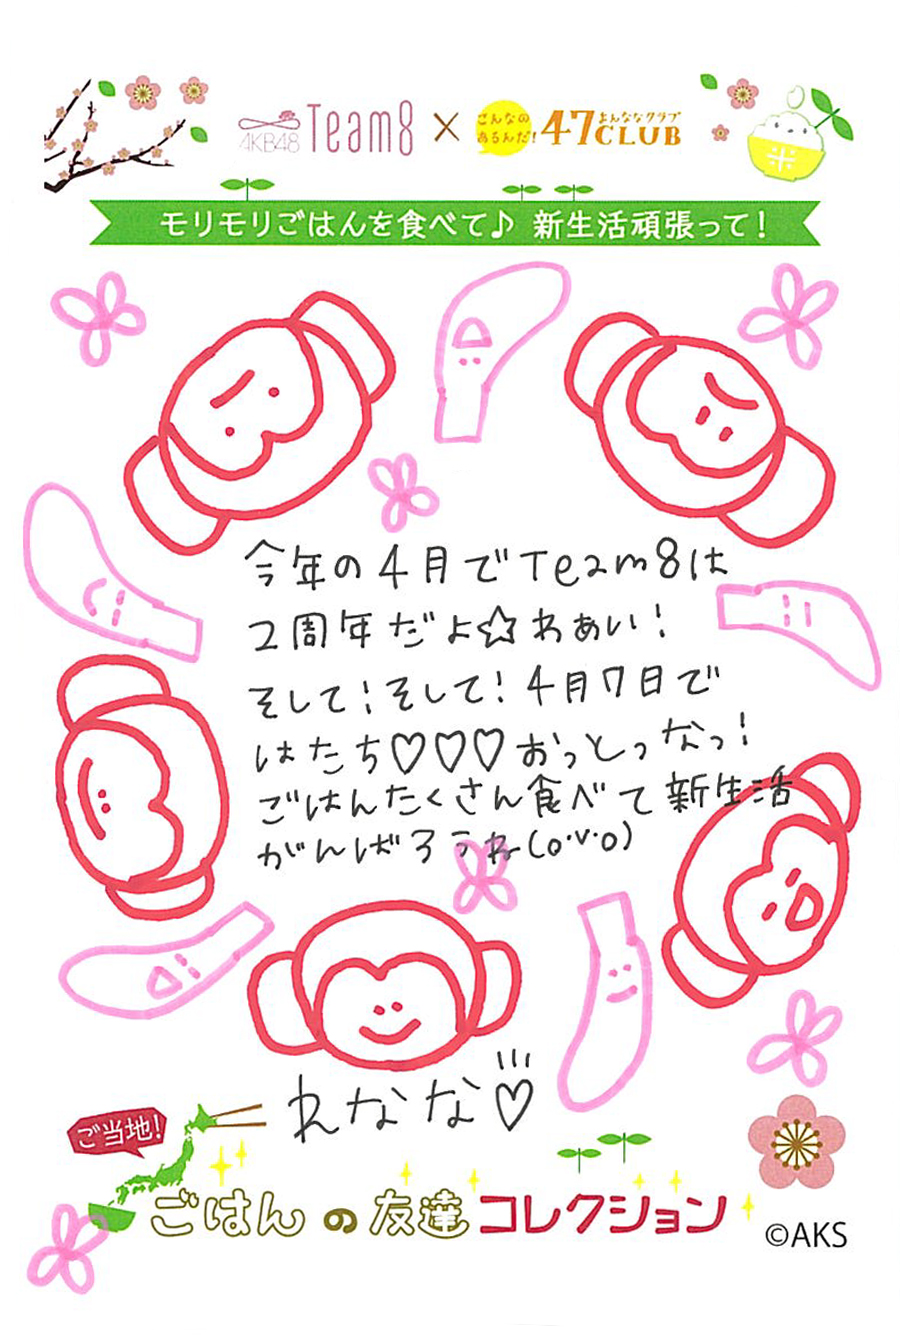 AKB48 Team8 × こんなのあるんだ! 47CLUB よんななクラブ
米
モリモリごはんを食べて♪ 新生活頑張って!
今年の4月でTeam8は
2周年だよ☆わぁい!
そして!そして!4月7日で
はたち♡♡♡おっとっなっ!
ごはんたくさん食べて新生活
がんばろうね(o・v・o)
れなな♡
ご当地!
ごはんの友達コレクション
©AKS